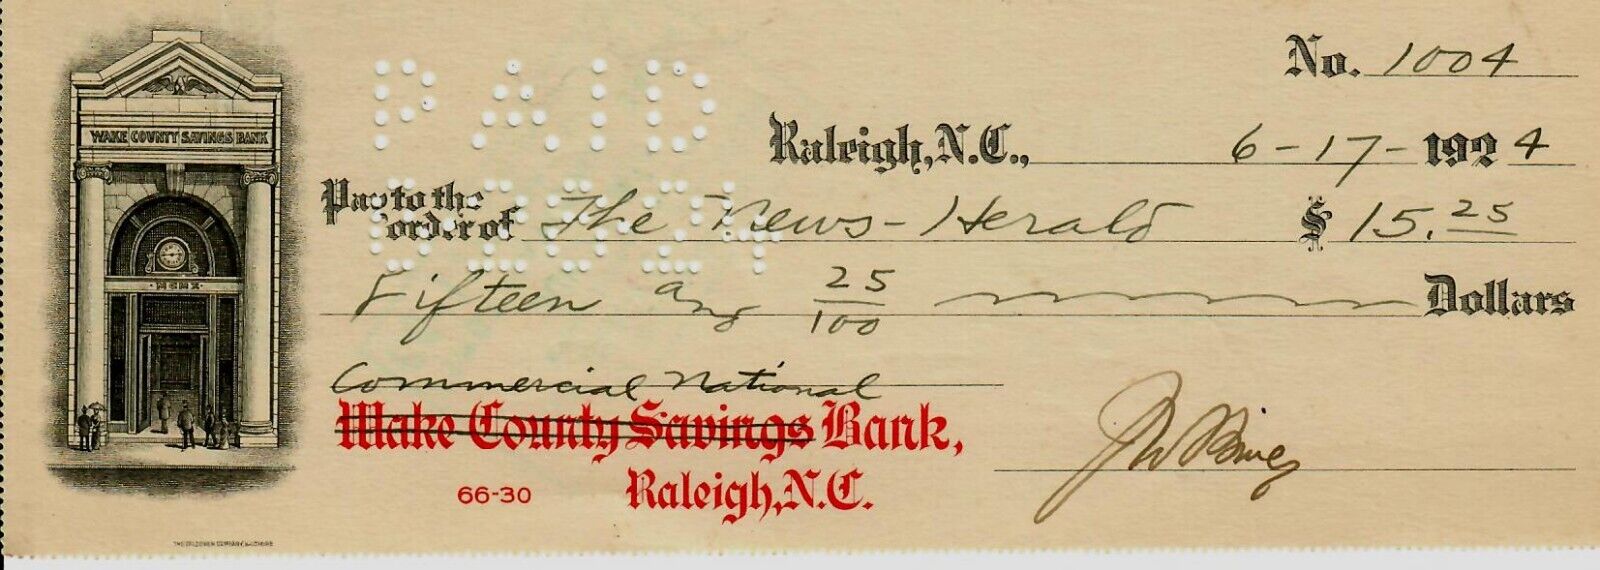 No. 1004
WAKE COUNTY SAVINGS BANK
MCMX
PAID
Raleigh, N.C., 6-17-1924
Pay to the order of The News-Herald $15.25
Fifteen and 25/100 Dollars
Commercial National
Wake County Savings Bank,
66-30 Raleigh, N.C.